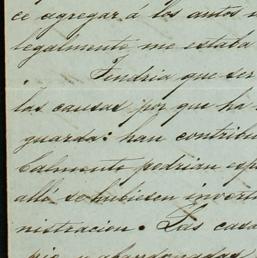 ce agregar á los autos
legalmente me estaba
Tendria que ser
las causas por que ha
guarda: han contribu
balmente podrian esp
allí se hubiesen invert
nistracion. Las casa
pio y abandonadas